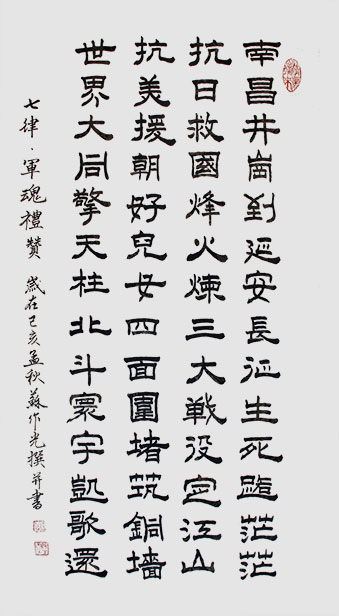 南昌井崗到延安長征生死路茫茫
抗日救國烽火煉三大戰役定江山
抗美援朝好兒女四面圍堵筑銅墻
世界大同擎天柱北斗寰宇凱歌還
七律·軍魂禮赞 歲在己亥孟秋蘇作光撰并書